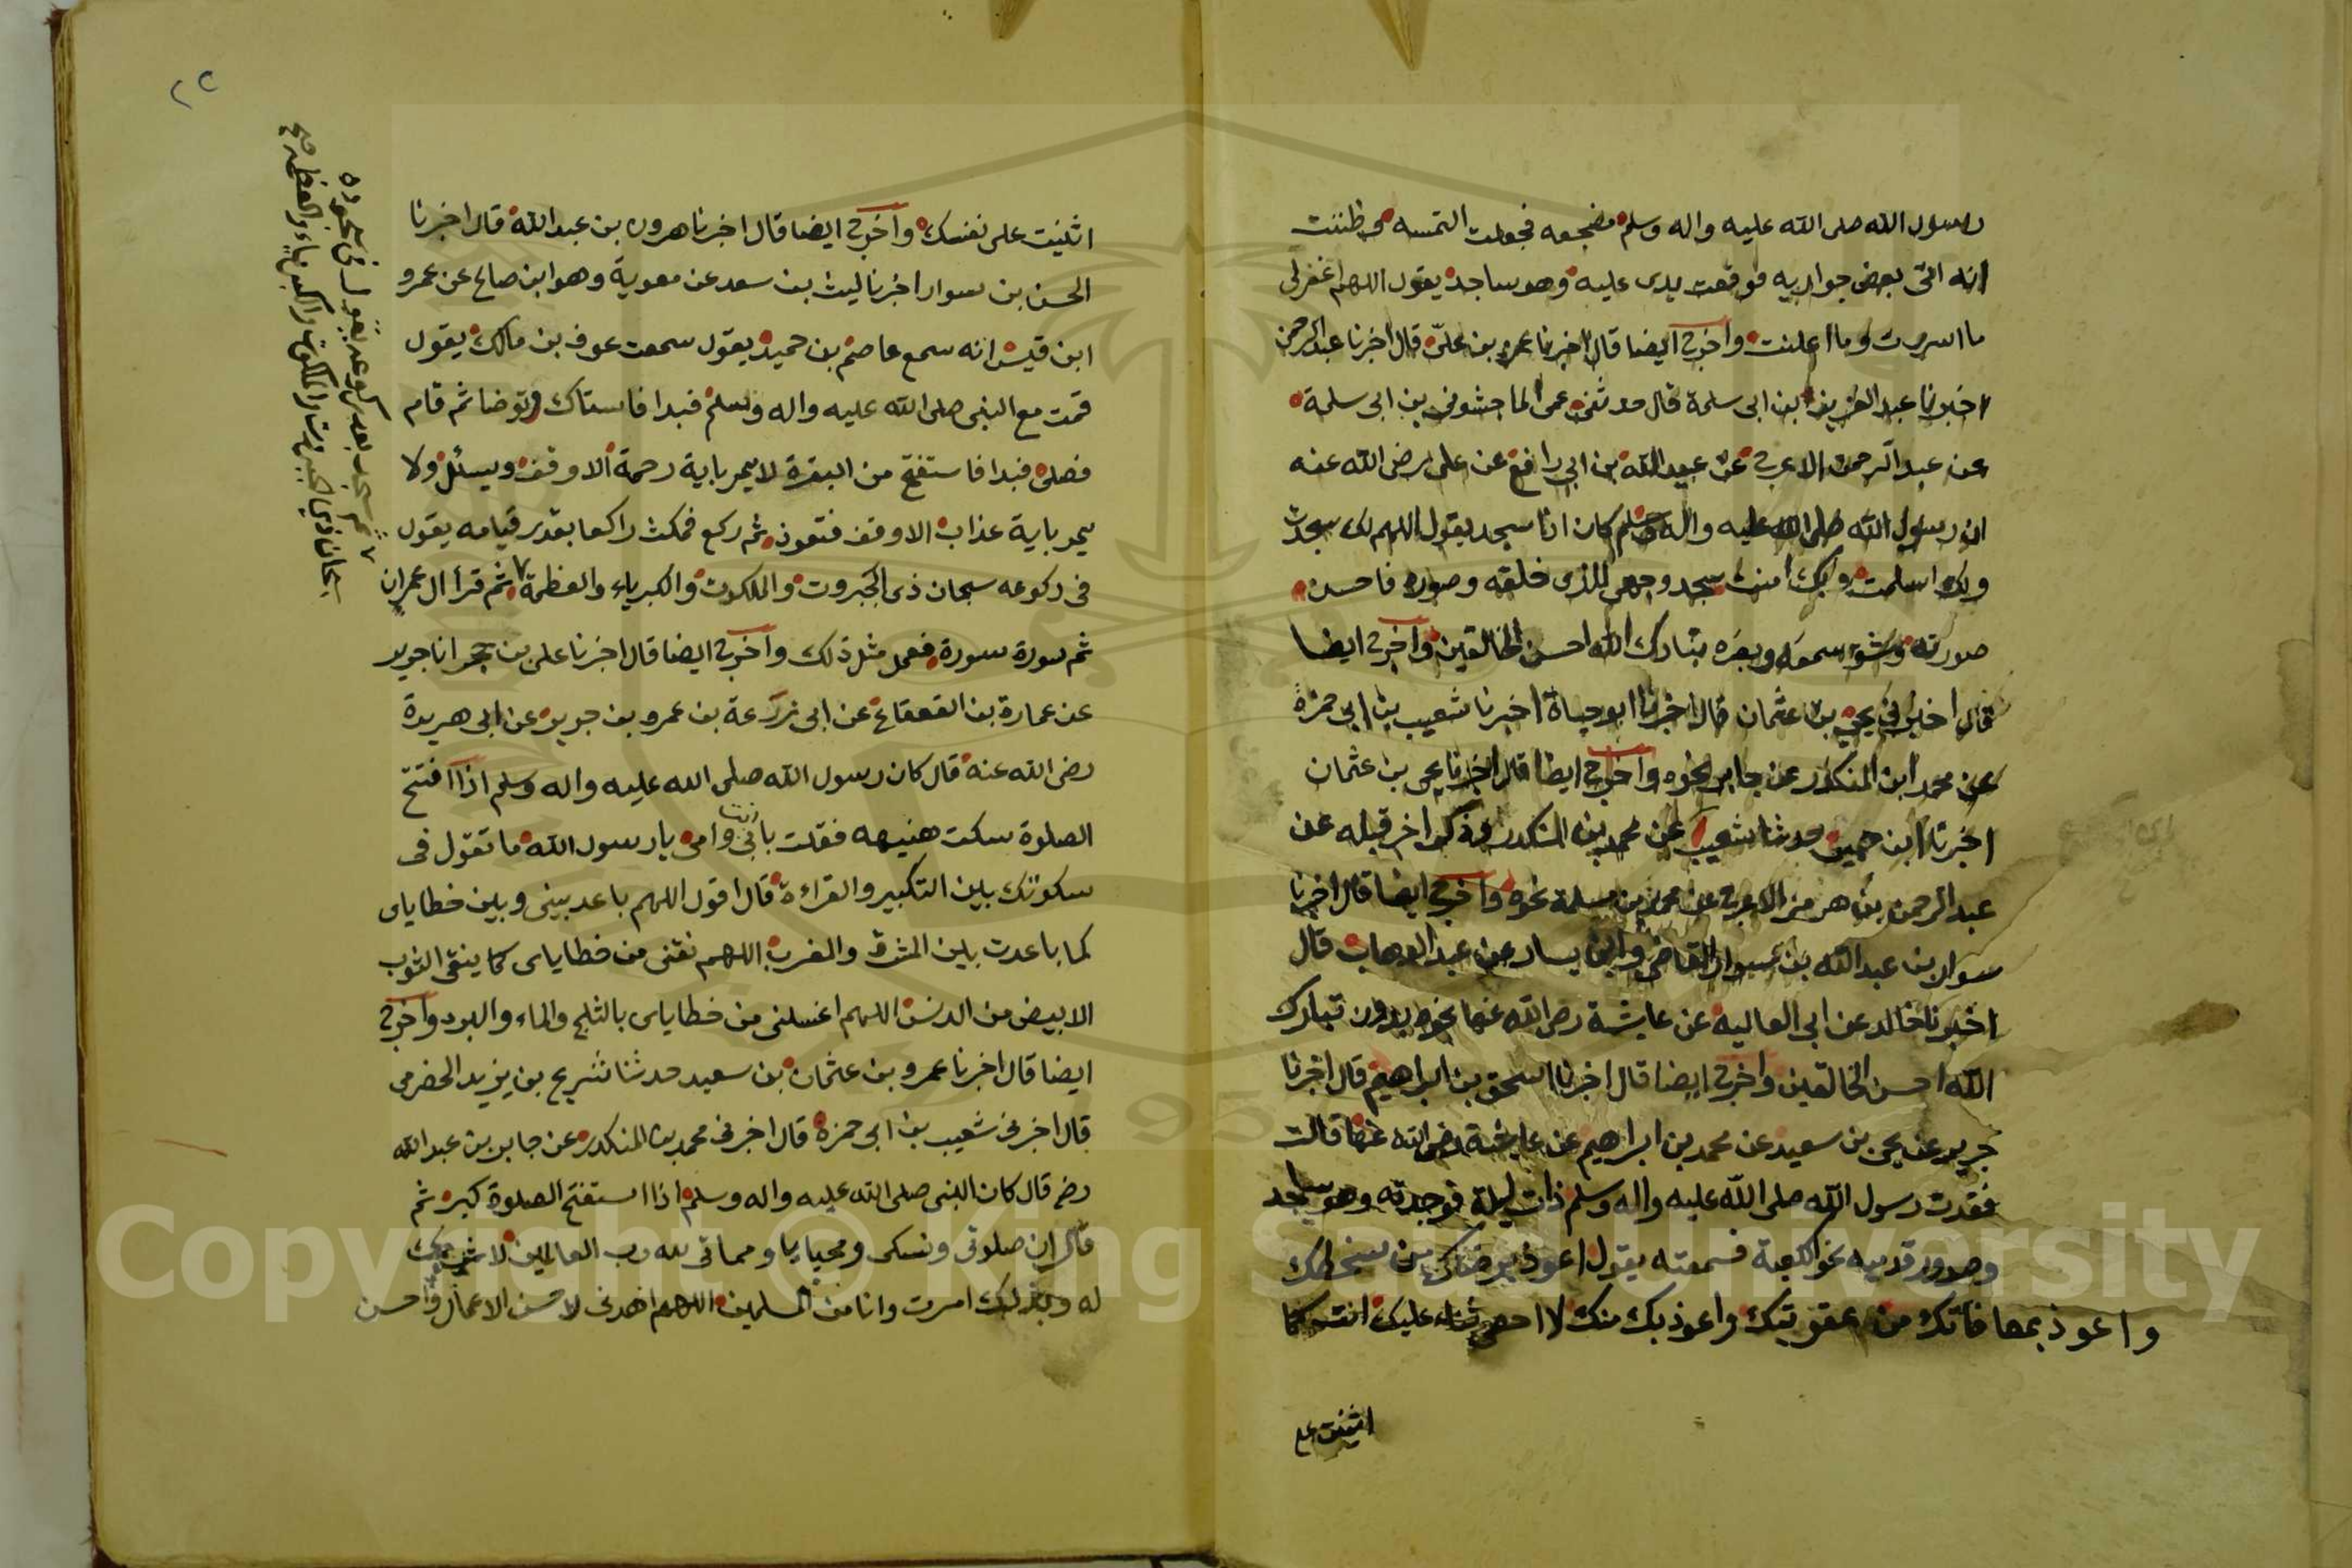 رسول الله صلى الله عليه واله وسلم مضجعه فجعلت التمسه وظننت
انه اتى بعض جواريه فوقعت يدى عليه وهو ساجد يقول اللهم اغفرلى
ما اسررت وما اعلنت واخرج ايضا قال اخبرنا عمرو بن على قال اخبرنا عبد الرحمن
اخبرنا عبد العزيز بن ابى سلمة قال حدثنى عمى الماجشون بن ابى سلمة
عن عبد الرحمن الاعرج عن عبيد الله بن ابى رافع عن على رضى الله عنه
ان رسول الله صلى الله عليه واله وسلم كان اذا سجد يقول اللهم لك سجدت
ولك اسلمت وبك امنت سجد وجهى للذى خلقه وصوره فاحسن
صورته وشق سمعه وبصره تبارك الله احسن الخالقين واخرج ايضا
قال اخبرنى يحيى بن عثمان قال اخبرنا ابو حياة اخبرنا شعيب بن ابى حمزة
عن محمد ابن المنكدر عن جابر نحوه واخرج ايضا قال اخبرنا يحيى بن عثمان
اخبرنا ابن حمير حدثنا شعيب عن محمد بن المنكدر وذكر اخر قبله عن
عبد الرحمن بن هرمز الاعرج عن محمد بن مسلمة نحوه واخرج ايضا قال اخبرنا
سوار بن عبد الله بن سوار القاضى وابن يسار عن عبد الوهاب قال
اخبرنا خالد عن ابى العاليه عن عايشة رضى الله عنها نحوه بدون تبارك
الله احسن الخالقين واخرج ايضا قال اخبرنا اسحق بن ابراهيم قال اخبرنا
جرير عن يحيى بن سعيد عن محمد بن ابراهيم عن عايشة رضى الله عنها قالت
فقدت رسول الله صلى الله عليه واله وسلم ذات ليلة فوجدته وهو ساجد
وصدور قدميه نحو الكعبة فسمعته يقول اعوذ برضاك من سخطك
واعوذ بمعافاتك من عقوبتك واعوذ بك منك لا احصى ثناء عليك انت كما
اثنيت على
٢٢
اثنيت على نفسك واخرج ايضا قال اخبرنا هرون بن عبد الله قال اخبرنا
الحسن بن سوار اخبرنا ليث بن سعد عن معوية وهو ابن صالح عن عمرو
ابن قيس انه سمع عاصم بن حميد يقول سمعت عوف بن مالك يقول
قمت مع النبى صلى الله عليه واله وسلم فبدا فاستاك وتوضا ثم قام
فصلى فبدا فاستفتح من البقرة لا يمر باية رحمة الا وقف ويسئل ولا
يمر باية عذاب الا وقف فتعوذ ثم ركع فمكث راكعا بقدر قيامه يقول
فى ركوعه سبحان ذى الجبروت والملكوت والكبرياء والعظمة ثم قرأ ال عمران
ثم سورة سورة فعل مثل ذلك واخرج ايضا قال اخبرنا على بن حجر انا جرير
عن عمارة بن القعقاع عن ابى زرعة بن عمرو بن جرير عن ابى هريرة
رضى الله عنه قال كان رسول الله صلى الله عليه واله وسلم اذا افتتح
الصلوة سكت هنيهه فقلت بابى وامى يا رسول الله ما تقول فى
سكوتك بين التكبير والقراءة قال اقول اللهم باعد بينى وبين خطاياى
كما باعدت بين المشرق والمغرب اللهم نقنى من خطاياى كما ينقى الثوب
الابيض من الدنس اللهم اغسلنى من خطاياى بالثلج والماء والبرد واخرج
ايضا قال اخبرنا عمرو بن عثمان بن سعيد حدثنا شريح بن يزيد الحضرمى
قال اخبرنى شعيب بن ابى حمزة قال اخبرنى محمد بن المنكدر عن جابر بن عبد الله
رضى قال كان النبى صلى الله عليه واله وسلم اذا استفتح الصلوة كبر ثم
قال ان صلوتى ونسكى ومحيايا ومماتى لله رب العالمين لا شريك
له وبذلك امرت وانا من المسلمين اللهم اهدنى لاحسن الاعمال واحسن
ثم سجد بعد ركوعه يقول فى سجوده
سبحان ذى الجبروت والملكوت والكبرياء والعظمة صح
Copyright © King Saud University